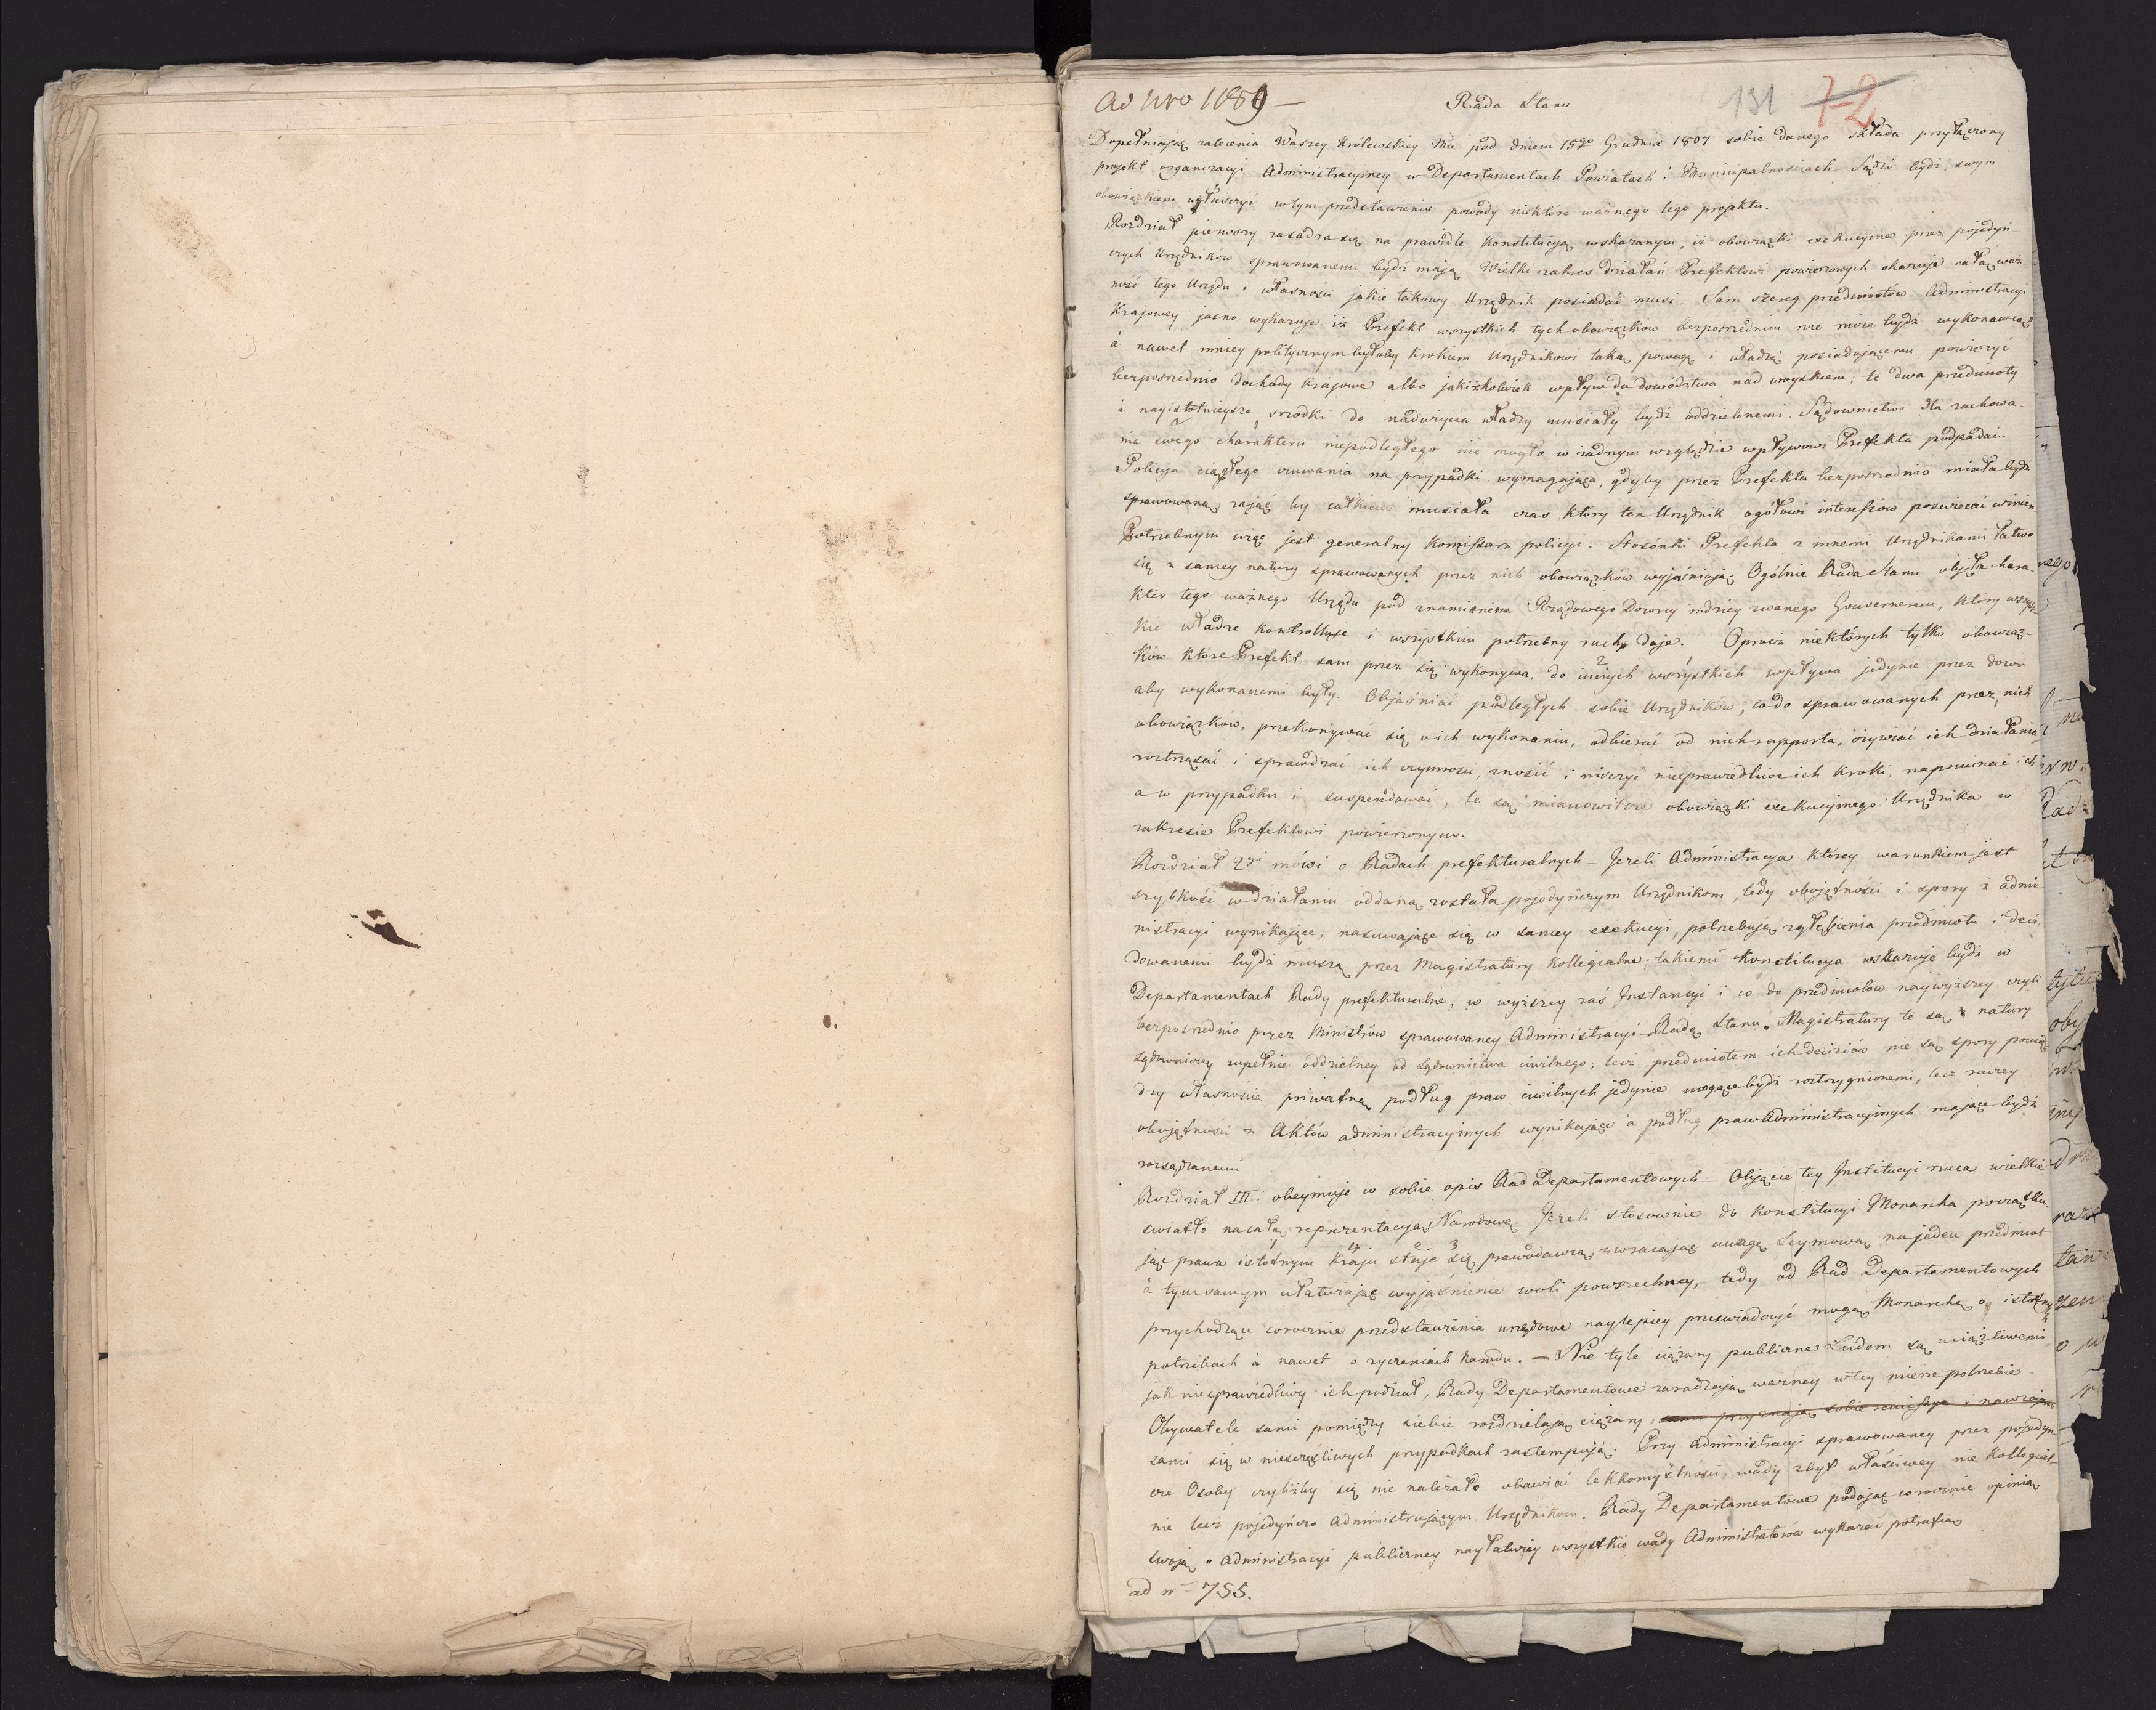 Ad Nro 1089 —
Rada Stanu
131 72
Dopełniaiąc zalecenia Waszey Królewskiey Mci pod dniem 15go Grudnia 1807 sobie danego składa przyłączony
projekt organizacyi Administracyiney w Departamentach Powiatach i Municipalnościach Sądzi bydź swym
obowiązkiem wyłuszczyć w tym przedstawieniu powody niektóre ważnego tego projektu.
Rozdział pierwszy zasadza się na prawidle Konstitucyą wskazanym, iż obowiązki exekucyine przez pojedyń-
czych Urzędnikow sprawowanemi bydź mają. Wielki zakres działań Prefektowi powierzonych okazuje całą waż
ność tego Urzędu i własności jakie takowy Urzędnik posiadać musi. Sam szereg przedmiotów Administracyi
Krajowey jasno wykazuje iż Prefekt wszystkich tych obowiązkow bezpośrednim nie może bydź wykonawcą
à nawet mniey politycznym byłoby krokiem Urzędnikowi taką powagę i władzę posiadającemu powierzyć
bezpośrednio dochody krajowe albo jakiżkolwiek wpływ do dowództwa nad woyskiem; te dwa przedmioty
à nayistotnieysze srzodki do nadużycia władzy musiały bydź oddzielonemi. Sądownictwo dla zachowa-
nia swego charakteru niepodległego nie mogło w żadnym względzie wpływowi Prefekta podpadać.
Policya ciągłego czuwania na przypadki wymagająca, gdyby przez Prefekta bezpośrednio miała bydź
sprawowaną, zająć by całkiem musiała czas który ten Urzędnik ogółowi interessów poświecać winien
Potrzebnym więc jest generalny Kommissarz policyi. Stosunki Prefekta z innemi Urzędnikami łatwo
się z samey natury sprawowanych przez nich obowiązków wyjaśniają. Ogólnie Rada Stanu objęła chara-
kter tego ważnego Urzędu pod znamieniem Rządowego Dozorcy indziey zwanego Gouvernerem, który wszyst
kie władze kontrolluje i wszystkim potrzebny ruch daje. Oprocz niektórych tylko obowiąz-
ków które Prefekt sam przez się wykonywa, do innych wszystkich wpływa jedynie przez dozor
aby wykonanemi były. Objaśniać podległych sobie Urzędników, co do sprawowanych przez nich
obowiązków, przekonywać się o ich wykonaniu, odbierać od nich rapporta, ożywiać ich działania
roztrząsać i sprawdzać ich czynności, znosić i niszczyć niesprawiedliwe ich kroki, napominać ich
a w przypadku i suspendować, te są mianowicie obowiązki exekucyinego Urzędnika w
zakresie Prefektowi powierzonym.
Rozdział 2gi mówi o Radach prefekturalnych – Jeżeli Administracya którey warunkiem jest
szybkość w działaniu oddaną została pojedyńczym Urzędnikom, tedy obojętności i spory z admi-
nistracyi wynikające, nasuwające się w samey exekucyi, potrzebują zgłębienia przedmiotu i deci
dowanemi bydź muszą przez Magistratury kollegialne; takiemi Konstitucya wskazuje bydź w
Departamentach Rady prefekturalne, w wyższey zaś Instancyi i co do przedmiotów naywyższey czyli
bezpośrednio przez Ministrów sprawowaney Administracyi Radę Stanu. Magistratury te są natury
sądowniczey zupełnie oddzielney od sądownictwa cywilnego; lecz przedmiotem ich deciziów nie są spory pomię
dzy własnością priwatną podług praw cywilnych jedynie mogące bydź roztrzygnionemi, lecz raczey
obojętności z Aktów administracyinych wynikające a podług praw Administracyinych mające bydź
rozsądzanemi
Rozdział III. obeymuje w sobie opis Rad Departamentowych – Objęcie tey Institucyi rzuca wielkie
światło na całą reprezentacyą Narodową. Jeżeli stosownie do Konstitucyi Monarcha początku-
jąc prawa istotnym kraju staje się prawodawcą zwracając uwagę Seymową na jeden przedmiot
à tym samym ułatwiając wyjaśnienie woli powszechney, tedy od Rad Departamentowych
przychodzące corocznie przedstawienia urzędowe naylepiey przeświadczyć mogą Monarchę o istotnych
potrzebach à nawet o życzeniach Narodu. — Nie tyle ciężary publiczne Ludom są uciążliwemi
jak niesprawiedliwy ich podział, Rady Departamentowe zaradzają ważney w tey mierze potrzebie
Obywatele sami pomiędzy siebie rozdzielają ciężary, sami przyznają sobie remissye i nawzajem
sami się w nieszczęśliwych przypadkach zastempują. Przy Administracyi sprawowaney przez pojedyń-
cze Osoby czyliżby się nie należało obawiać lekkomyślności, wady zbyt właściwey nie kollegial-
nie lecz pojedyńczo administrującym Urzędnikom. Rady Departamentowe podając corocznie opinią
swoją o Administracyi publiczney nayłatwiey wszystkie wady Administratorów wykazać potrafią
ad n 755.